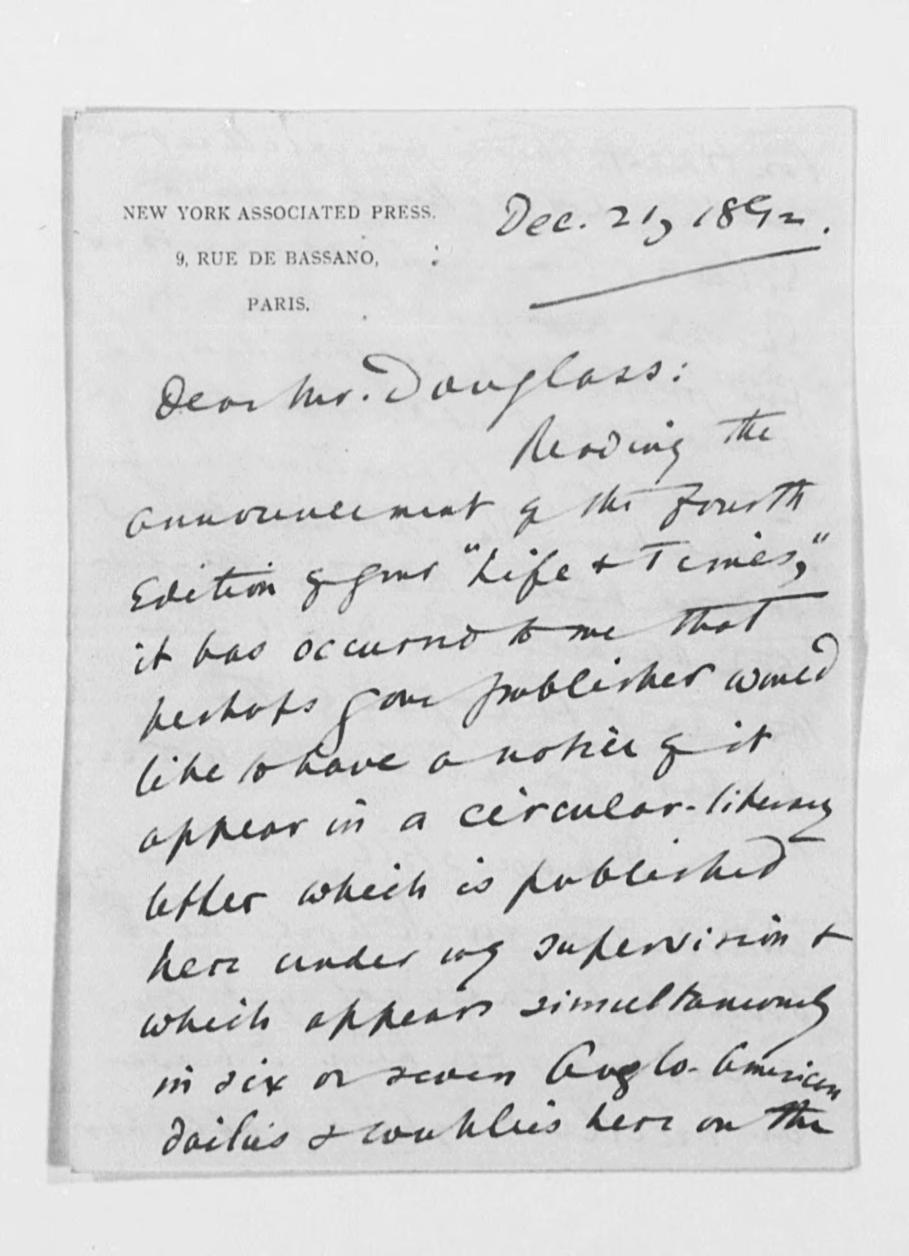 NEW YORK ASSOCIATED PRESS.
9, RUE DE BASSANO,
PARIS.
Dec. 21, 1892.
Dear Mr. Douglass:
Reading the
announcement of the fourth
Edition of your "Life & Times,"
it has occurred to me that
perhaps your publisher would
like to have a notice of it
appear in a circular-literary
letter which is published
here under my supervision &
which appears simultaneously
in six or seven Anglo-American
dailies & weeklies here on the